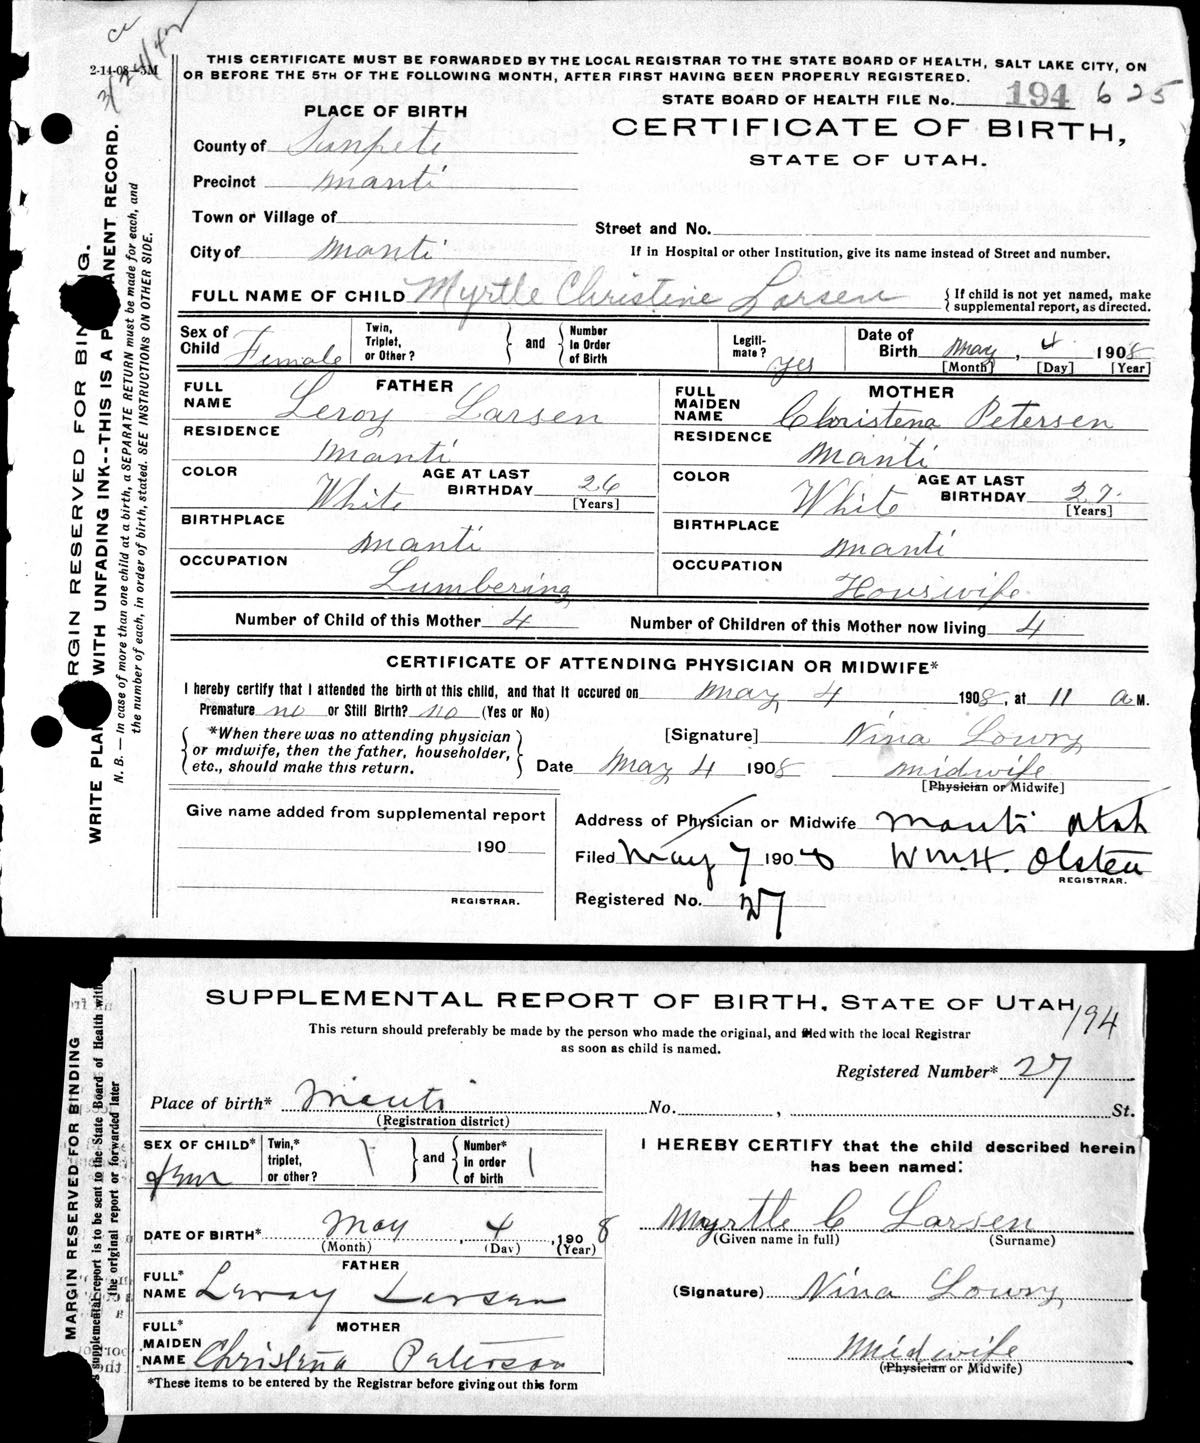 ce
3/24/42
2-14-08—5M
THIS CERTIFICATE MUST BE FORWARDED BY THE LOCAL REGISTRAR TO THE STATE BOARD OF HEALTH, SALT LAKE CITY, ON
OR BEFORE THE 5TH OF THE FOLLOWING MONTH, AFTER FIRST HAVING BEEN PROPERLY REGISTERED.
STATE BOARD OF HEALTH FILE No. 194 625
CERTIFICATE OF BIRTH,
STATE OF UTAH.
PLACE OF BIRTH
County of Sanpete
Precinct Manti
Town or Village of
Street and No.
City of Manti
If in Hospital or other Institution, give its name instead of Street and number.
FULL NAME OF CHILD Myrtle Christine Larsen
{If child is not yet named, make
supplemental report, as directed.
Sex of Child Female
Twin, Triplet, or Other?
} and {
Number in Order of Birth
Legiti-mate? yes
Date of Birth May, 4 1908
[Month] [Day] [Year]
FATHER
FULL NAME Leroy Larsen
RESIDENCE Manti
COLOR White AGE AT LAST BIRTHDAY 26 [Years]
BIRTHPLACE Manti
OCCUPATION Lumbering
MOTHER
FULL MAIDEN NAME Christena Petersen
RESIDENCE Manti
COLOR White AGE AT LAST BIRTHDAY 27 [Years]
BIRTHPLACE Manti
OCCUPATION Houswife
Number of Child of this Mother 4 Number of Children of this Mother now living 4
CERTIFICATE OF ATTENDING PHYSICIAN OR MIDWIFE*
I hereby certify that I attended the birth of this child, and that it occured on May 4 1908, at 11 a M.
Premature no or Still Birth? no (Yes or No)
{*When there was no attending physician
or midwife, then the father, householder,
etc., should make this return.}
[Signature] Nina Lowry
Date May 4 1908 midwife
[Physician or Midwife]
Give name added from supplemental report
190
REGISTRAR.
Address of Physician or Midwife Manti Utah
Filed May 7 1908 Wm. H. Olsten
REGISTRAR.
Registered No. 27
RGIN RESERVED FOR BIN NG.
WRITE PLA WITH UNFADING INK--THIS IS A P ANENT RECORD.
N. B. — In case of more than one child at a birth, a SEPARATE RETURN must be made for each, and
the number of each, in order of birth, stated. SEE INSTRUCTIONS ON OTHER SIDE.
SUPPLEMENTAL REPORT OF BIRTH, STATE OF UTAH
194
This return should preferably be made by the person who made the original, and filed with the local Registrar
as soon as child is named.
Registered Number* 27
Place of birth* Manti No. , St.
(Registration district)
SEX OF CHILD* Fem
Twin,* triplet, or other? 1
} and {
Number* in order of birth 1
DATE OF BIRTH* May, 4, 1908
(Month) (Day) (Year)
FATHER
FULL* NAME Leroy Larsen
MOTHER
FULL* MAIDEN NAME Christena Paterson
*These items to be entered by the Registrar before giving out this form
I HEREBY CERTIFY that the child described herein
has been named:
Myrtle C Larsen
(Given name in full) (Surname)
(Signature) Nina Lowry
Midwife
(Physician or Midwife)
MARGIN RESERVED FOR BINDING
supplemental report is to be sent to the State Board of Health with
the original report or forwarded later